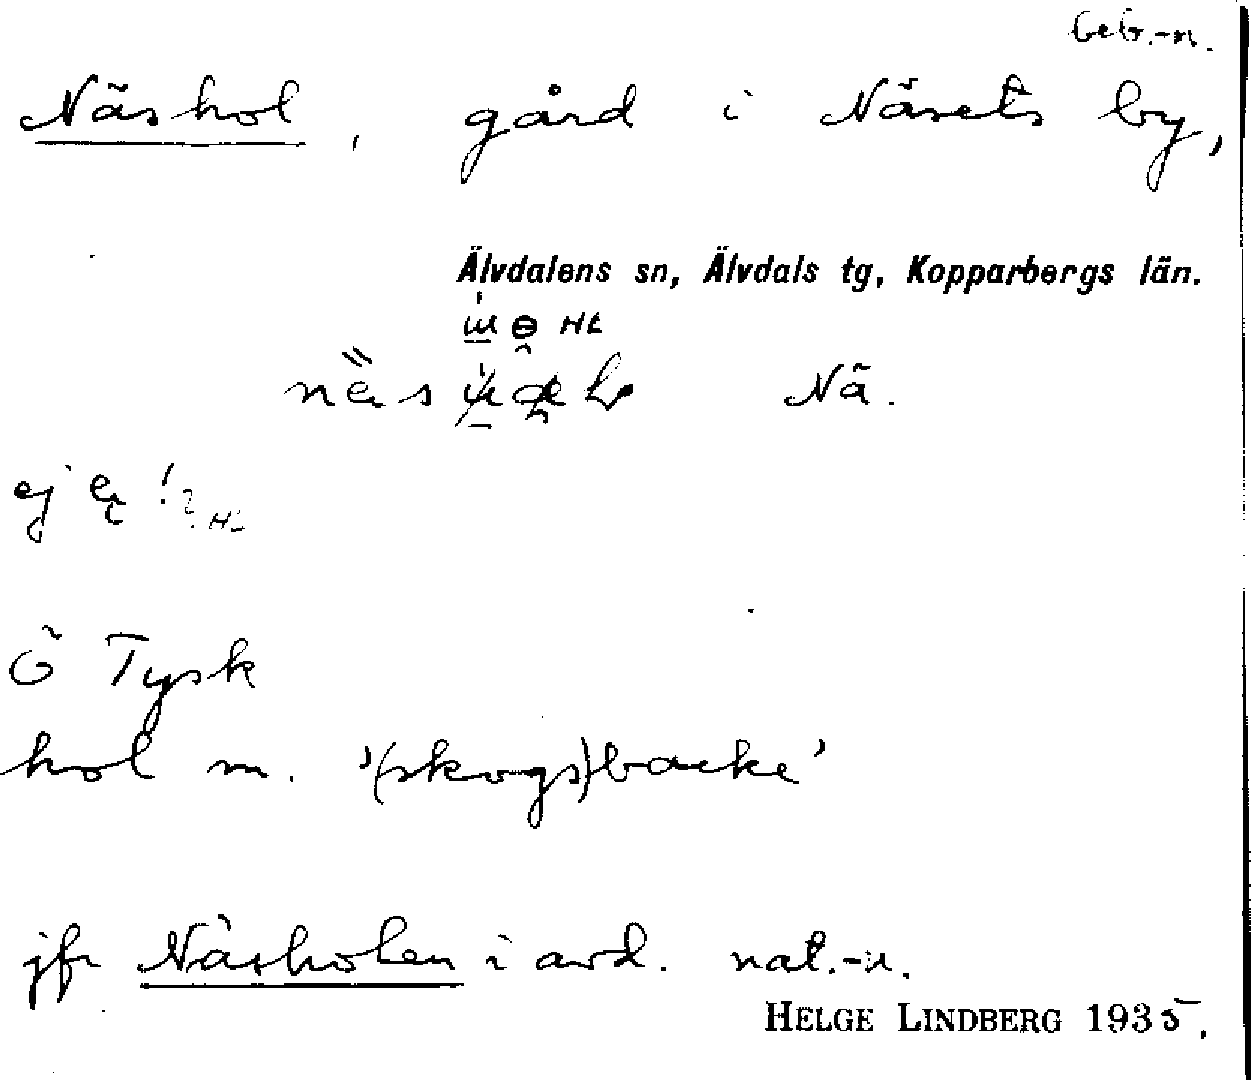 beb.-n.
Näshol, gård i Näsets by,
Älvdalens sn, Älvdals tg, Kopparbergs län.
HL
Nä.
ej
HL
Ö Tysk
hol m. '(skogs)backe'
jfr Näsholen i avd. nat.-n.
HELGE LINDBERG 1935.